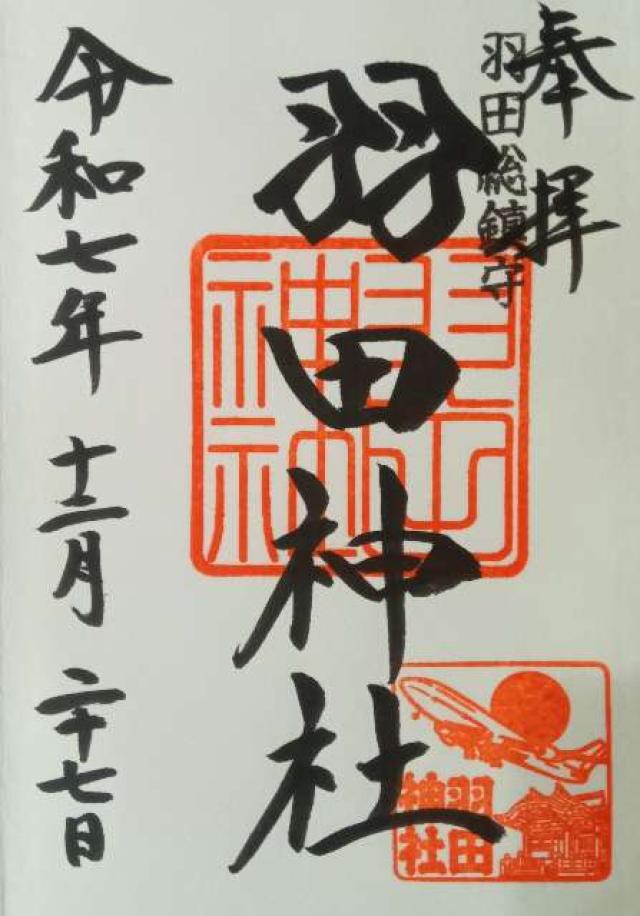 奉拝
羽田総鎮守
羽田神社
令和七年 十二月 二十七日
羽田
神社